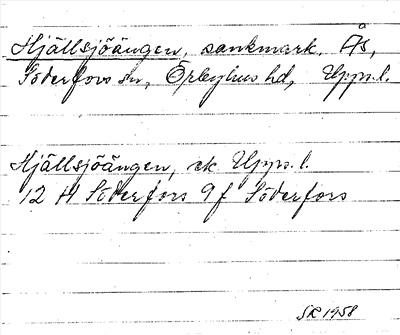 Hjällsjöängen, sankmark. Ås,
Söderfors sn, Örbyhus hd, Upps.l.
Hjällsjöängen, ek Upps.l.
12 H Söderfors 9f Söderfors
SR 1958